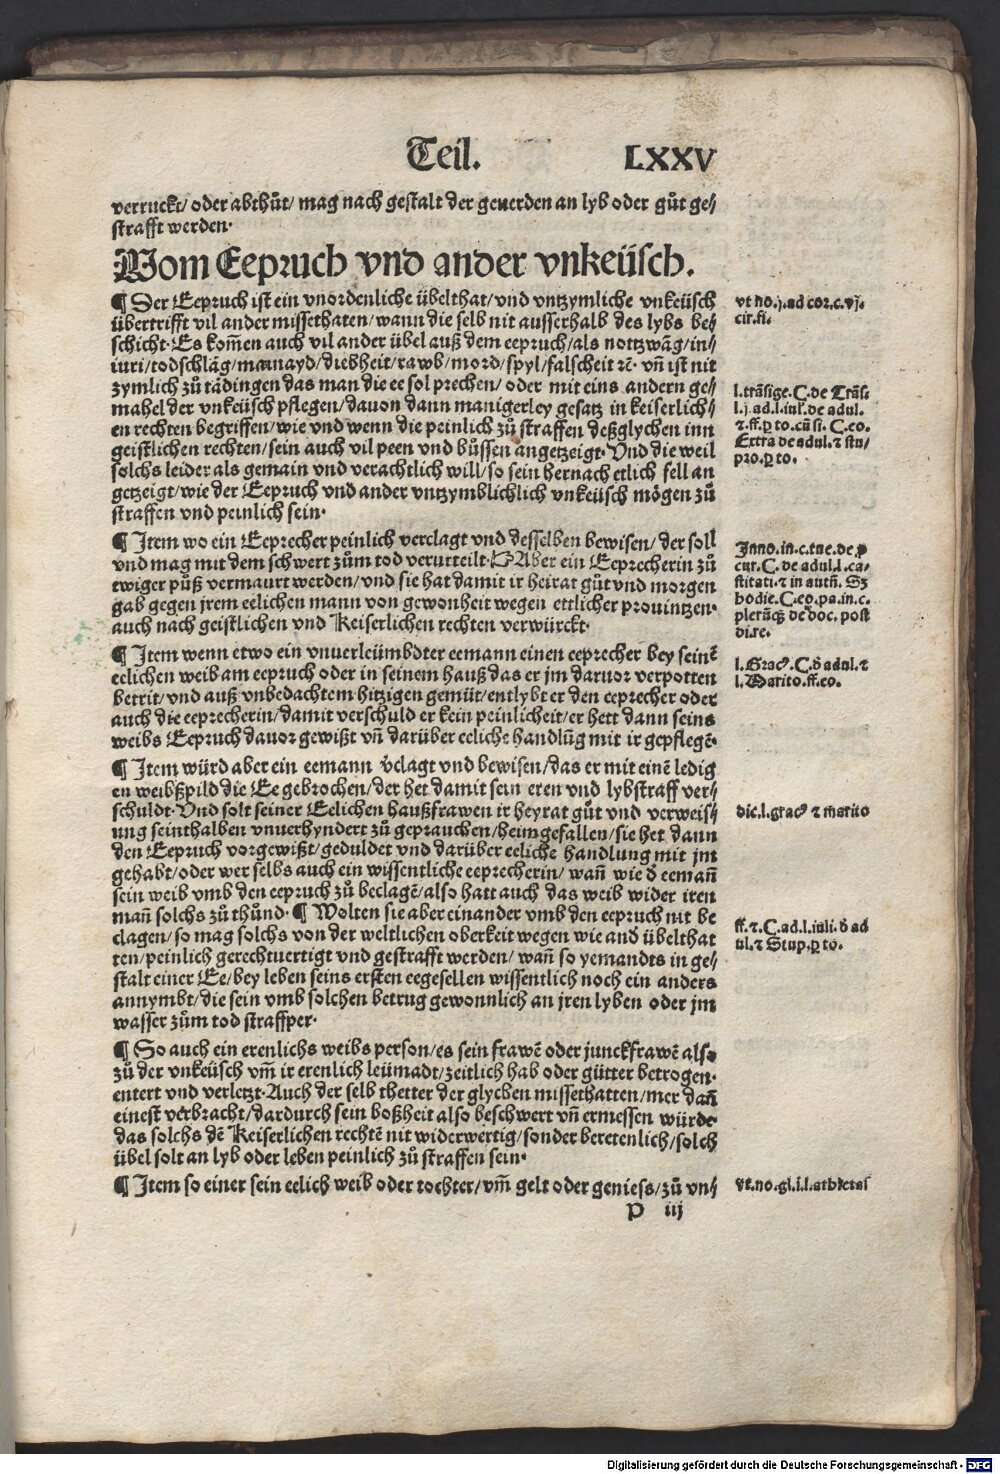 Teil. LXXV
verruckt/ oder abthůt/ mag nach gestalt der geuerden an lyb oder gůt ge⸗
strafft werden·
Vom Eepruch vnd ander vnkeüsch.
¶ Der Eepruch ist ein vnordenliche übelthat/ vnd vntzymliche vnkeüsch
übertrifft vil ander missethaten/ wann die selb nit ausserhalb des lybs be⸗
schicht· Es kom̃en auch vil ander übel auß dem eepruch/ als nottzwãg/ in⸗
iuri/ todschläg/ mainayd/ diebheit/ rawb/ mord/ spyl/ falscheit ꝛc̃· vñ ist nit
zymlich zů tädingen das man die ee sol prechen/ oder mit eins andern ge⸗
mahel der vnkeüsch pflegen/ dauon dann manigerley gesatz in keiserlich⸗
en rechten begriffen/ wie vnd wenn die peinlich zů straffen deßglychen inn
geistlichen rechten/ sein auch vil peen vnd bůssen angetzeigt· Vnd die weil
solchs leider als gemain vnd verachtlich will/ so sein hernach etlich fell an
getzeigt/ wie der Eepruch vnd ander vntzymblichlich vnkeüsch mögen zů
straffen vnd peinlich sein·
¶ Item wo ein Eeprecher peinlich verclagt vnd desselben bewisen/ der soll
vnd mag mit dem schwert zům tod verurteilt· Aber ein Eeprecherin zů
ewiger půß vermaurt werden/ vnd sie hat damit ir heirat gůt vnd morgen
gab gegen jrem eelichen mann von gewonheit wegen ettlicher prouintzen·
auch nach geistlichen vnd Keiserlichen rechten verwürckt·
¶ Item wenn etwo ein vnuerleümbdter eemann einen eeprecher bey seinẽ
eelichen weib am eepruch oder in seinem hauß das er jm daruor verpotten
betrit/ vnd auß vnbedachtem hitzigen gemüt/ entlybt er den eeprecher oder
auch die eeprecherin/ damit verschuld er kein peinlicheit/ er hett dann seins
weibs Eepruch dauor gewißt vñ darüber eeliche handlũg mit ir gepflegẽ·
¶ Item würd aber ein eemann v̉clagt vnd bewisen/ das er mit einẽ ledig
en weibßpild die Ee gebrochen/ der het damit sein eren vnd lybstraff ver⸗
schuldt· Vnd solt seiner Eelichen haußfrawen ir heyrat gůt vnd verweis⸗
ung seinthalben vnuerhyndert zů geprauchen/ heimgefallen/ sie het dann
den Eepruch vorgewißt/ geduldet vnd darüber eeliche handlung mit jm
gehabt/ oder wer selbs auch ein wissentliche eeprecherin/ wañ wie d̉ eemañ
sein weib vmb den eepruch zů beclagẽ/ also hatt auch das weib wider iren
mañ solchs zů thůnd· ¶ Wolten sie aber einander vmb den eepruch nit be
clagen/ so mag solchs von der weltlichen oberkeit wegen wie and übelthat
ten/ peinlich gerechtuertigt vnd gestrafft werden/ wañ so yemandts in ge⸗
stalt einer Ee/ bey leben seins ersten eegesellen wissentlich noch ein anders
annymbt/ die sein vmb solchen betrug gewonnlich an jren lyben oder jm
wasser zům tod straffper·
¶ So auch ein erenlichs weibs person/ es sein frawẽ oder junckfrawẽ also
zů der vnkeüsch vm̃ ir erenlich leümadt/ zeitlich hab oder gütter betrogen·
entert vnd verletzt· Auch der selb thetter der glychen missethatten/ mer dañ
einest verbracht/ dardurch sein boßheit also beschwert vñ ermessen würde·
das solchs dẽ Keiserlichen rechtẽ nit widerwertig/ sonder beretenlich/ solch
übel solt an lyb oder leben peinlich zů straffen sein·
¶ Item so einer sein eelich weib oder tochter/ vm̃ gelt oder geniess/ zů vn⸗
P iij
vt no.j.ad cor.c.vj.
cir.fi.
l.trãsige.C.de Trãs.
l.j.ad.l.iul'.de adul.
⁊.ff.ꝑ to.cũ si. C.eo.
Extra de adul.⁊ stu⸗
pro.ꝑ to.
Inno.in.c.tue.de p
cur.C.de adul.l.ca⸗
stitati.⁊ in autñ. Sꝫ
hodie.C.eo.pa.in.c.
plerũqꝫ de doc. post
di.re.
l.Gracꝰ.C.d̉ adul.⁊
l.Marito.ff.eo.
dic.l.gracꝰ ⁊ marito
ff.⁊.C.ad.l.iuli.d̉ ad
ul.⁊ Stup.ꝑ to.
vt.no.gl.i.l.athletas
Digitalisierung gefördert durch die Deutsche Forschungsgemeinschaft - DFG